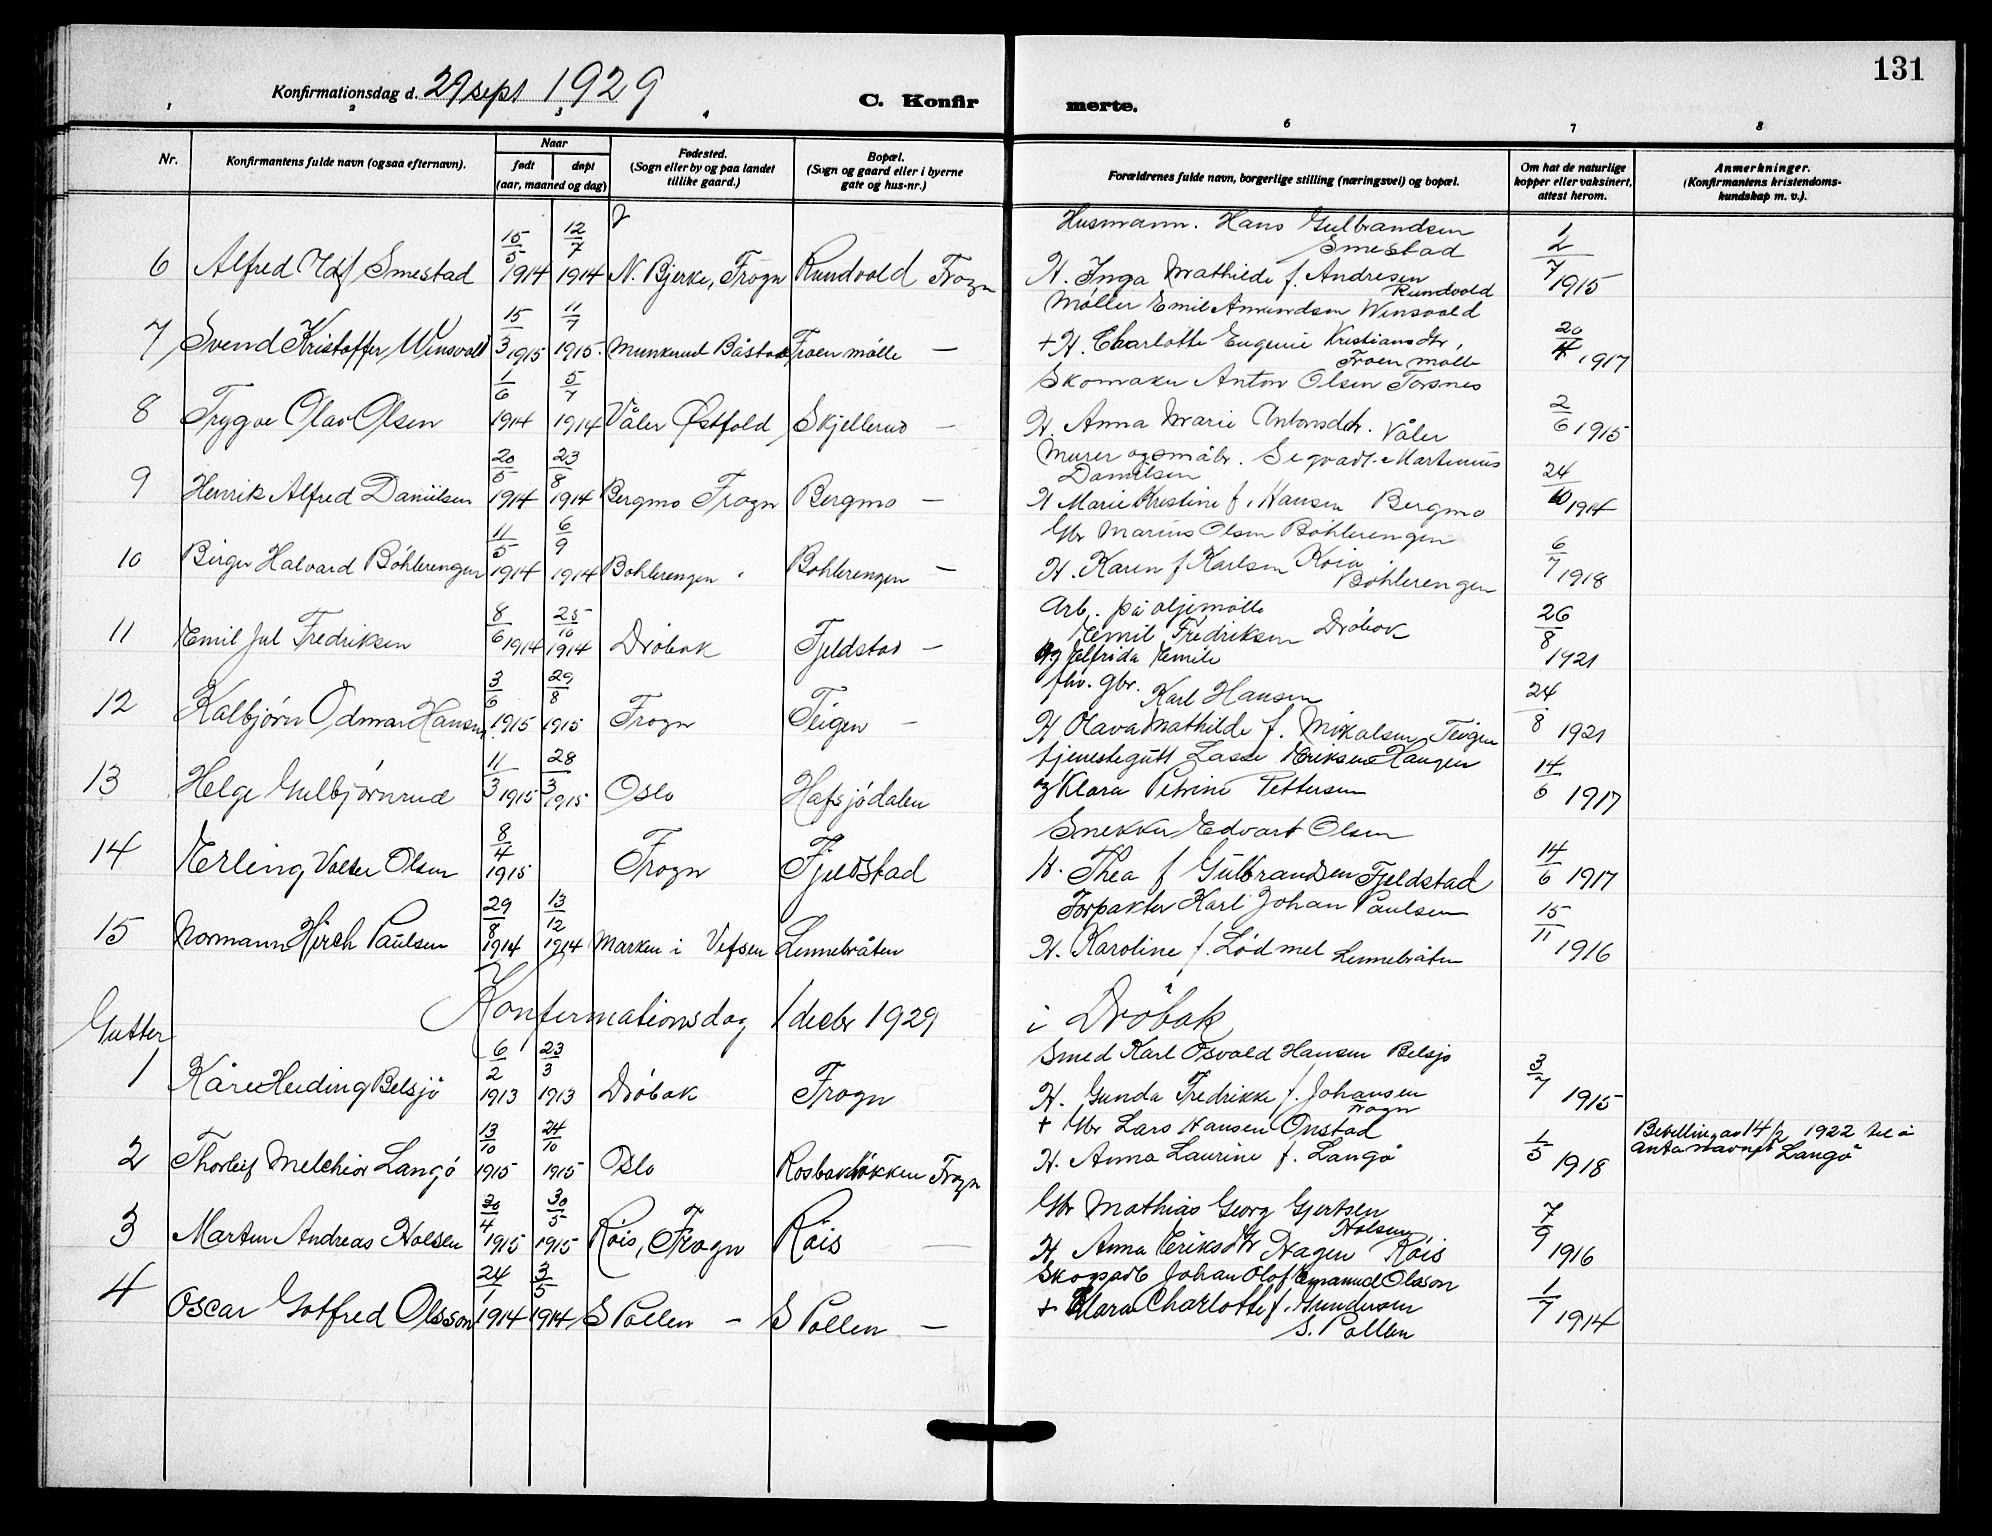 131
Konfirmationsdag d. 29 sept 1929
C. Konfir merte.
1 2 3 4 6 7 8
Nr.
Konfirmantens fulde navn (ogsaa efternavn).
Naar
født døpt
(aar, maaned og dag)
Fødested.
(Sogn eller by og paa landet
tillike gaard.)
Bopæl.
(Sogn og gaard eller i byerne
gate og hus-nr.)
Forældrenes fulde navn, borgerlige stilling (næringsvei) og bopæl.
Om hat de naturlige
kopper eller vaksinert,
attest herom.
Anmerkninger.
(Konfirmantens kristendoms-
kundskap m. v.).
Husmann. Hans Gulbrandsen
Smestad
6 Alfred Smestad 15/5 1914 12/7 1914 N. Bjerke, Frogn Rundvold Frogn H. Inga Mathilde f. Andresen 1/7 1915
Rundvold
Møller Emil Amundsen Winsvold
7 Svend Kristoffer Winsvold 15/3 1915 11/7 1915. Munkerud Båstad Froen mølle — + H. Charlotte Eugenie Kristiansdtr, 20/4 1917
Froen mølle
Skomaker Anton Olsen Torsnes
8 Trygve Olav Olsen 1/6 1914 5/7 1914 Våler Østfold Skjellerud — H. Anna Marie Antonsdtr. Våler 2/6 1915
Murer og småbr. Sigvart Martinius
Danielsen
9 Henrik Alfred Daniilsen 20/5 1914 23/8 1914 Bergmo Frogn Bergmo — H Marie Kristine f. Hansen Bergmo 24/10 1914
Gbr Marius Olsen Böhlerengen
10 Birger Halvard Böhlerengen 11/5 1914 6/9 1914 Bohlerengen Bohlerengen — H. Karen f Karlsen Koia 6/7 1918
Böhlerengen
Arb. på oljemølle
11 Emil Jul Fredriksen 8/6 1914 25/10 1914 Dröbak Fjeldstad — Emil Fredriksen Dröbak 26/8 1921
og Elfrida Emile
fhv. gbr. Karl Hansen
12 Kalbjørn Odmar Hansen 3/6 1915 29/8 1915 Frogn Teigen — H Olava Mathilde f. Mikalsen Teigen 24/8 1921
tjenestegutt Lasse Eriksen Haugen
13 Helge Gulbjørnrud 11/3 1915 28/3 1915 Oslo Hafsjödalen og Klara Petrine Pettersen 14/6 1917
Snekker Edvart Olsen
14 Erling Valter Olsen 8/4 1915 Frogn Fjeldstad H. Thea f Gulbrandsen Fjeldstad 14/6 1917
Forpakter Karl Johan Paulsen
15 Normann Hirch Paulsen 29/8 1914 13/12 1914 Marken i Vefsen Lennebråten H. Karoline f. Lödmel Lennebråten 15/11 1916
Konfermationsdag 1 decbr 1929 i Dröbak
Gutter
Smed Karl Osvald Hansen Belsjö
1 Kåre Heiding Belsjö 6/2 1913 23/3 1913 Dröbak Frogn H. Gunda Fredrikke f. Johansen 3/7 1915
Frogn
+ Gbr Lars Hansen Onstad
2 Thorleif Melchior Langö 13/10 1915 24/10 1915 Oslo Frogn H. Anna Laurine f. Langö 1/5 1918 Bevilling av 14/2 1922 til å
anta navnet Langö
Gbr Mathias Georg Gjertsen
Holsen
3 Martin Andreas Holsen 30/4 1915 30/5 1915 Röis, Frogn Röis — H Anna Eriksdtr Hagen Röis 7/9 1916
Skogsarb Johan Olof Emanuel Olsson
4 Oscar Gotfred Olsson 24/1 1914 3/5 1914 S Pollen — S Pollen — + Klara Charlotte f. Gundersen 1/7 1914
S. Pollen